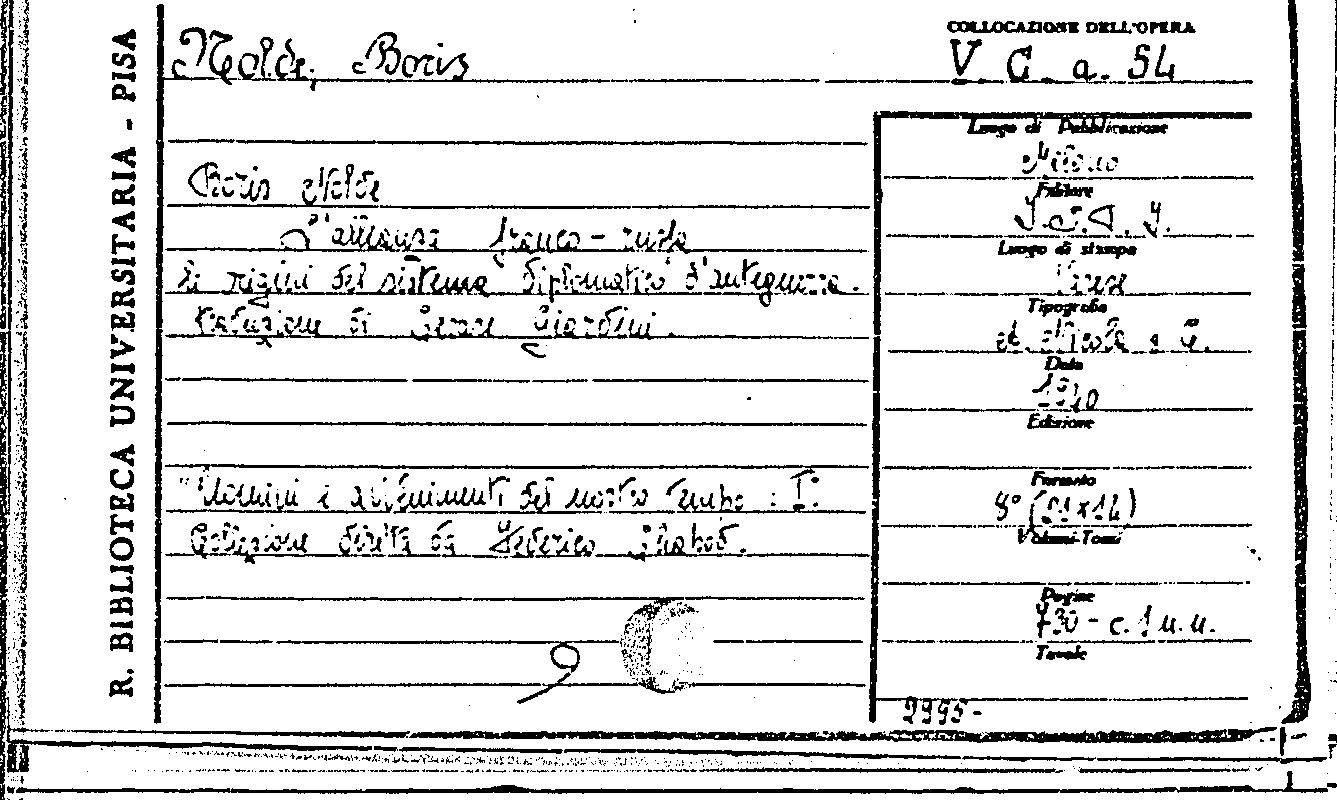 R. BIBLIOTECA UNIVERSITARIA - PISA
Nolde, Boris
COLLOCAZIONE DELL'OPERA
V. C. a. 54
Boris Nolde
L'alleanza franco-russa
le rigini del sistema diplomatico d'anteguerra.
traduzione di Cesare Giardini.
"Uomini e avvenimenti del nostro tempo : I°
Collezione diretta da Federico Chabod.
Luogo di Pubblicazione
Milano
Editore
I.S.P.I.
Luogo di stampa
Varese
Tipografia
A. Nicola e C.
Data
1940
Edizione
Formato
8° (21x14)
Volumi-Tomi
Pagine
730 - c. 1 n. n.
Tavole
2995-